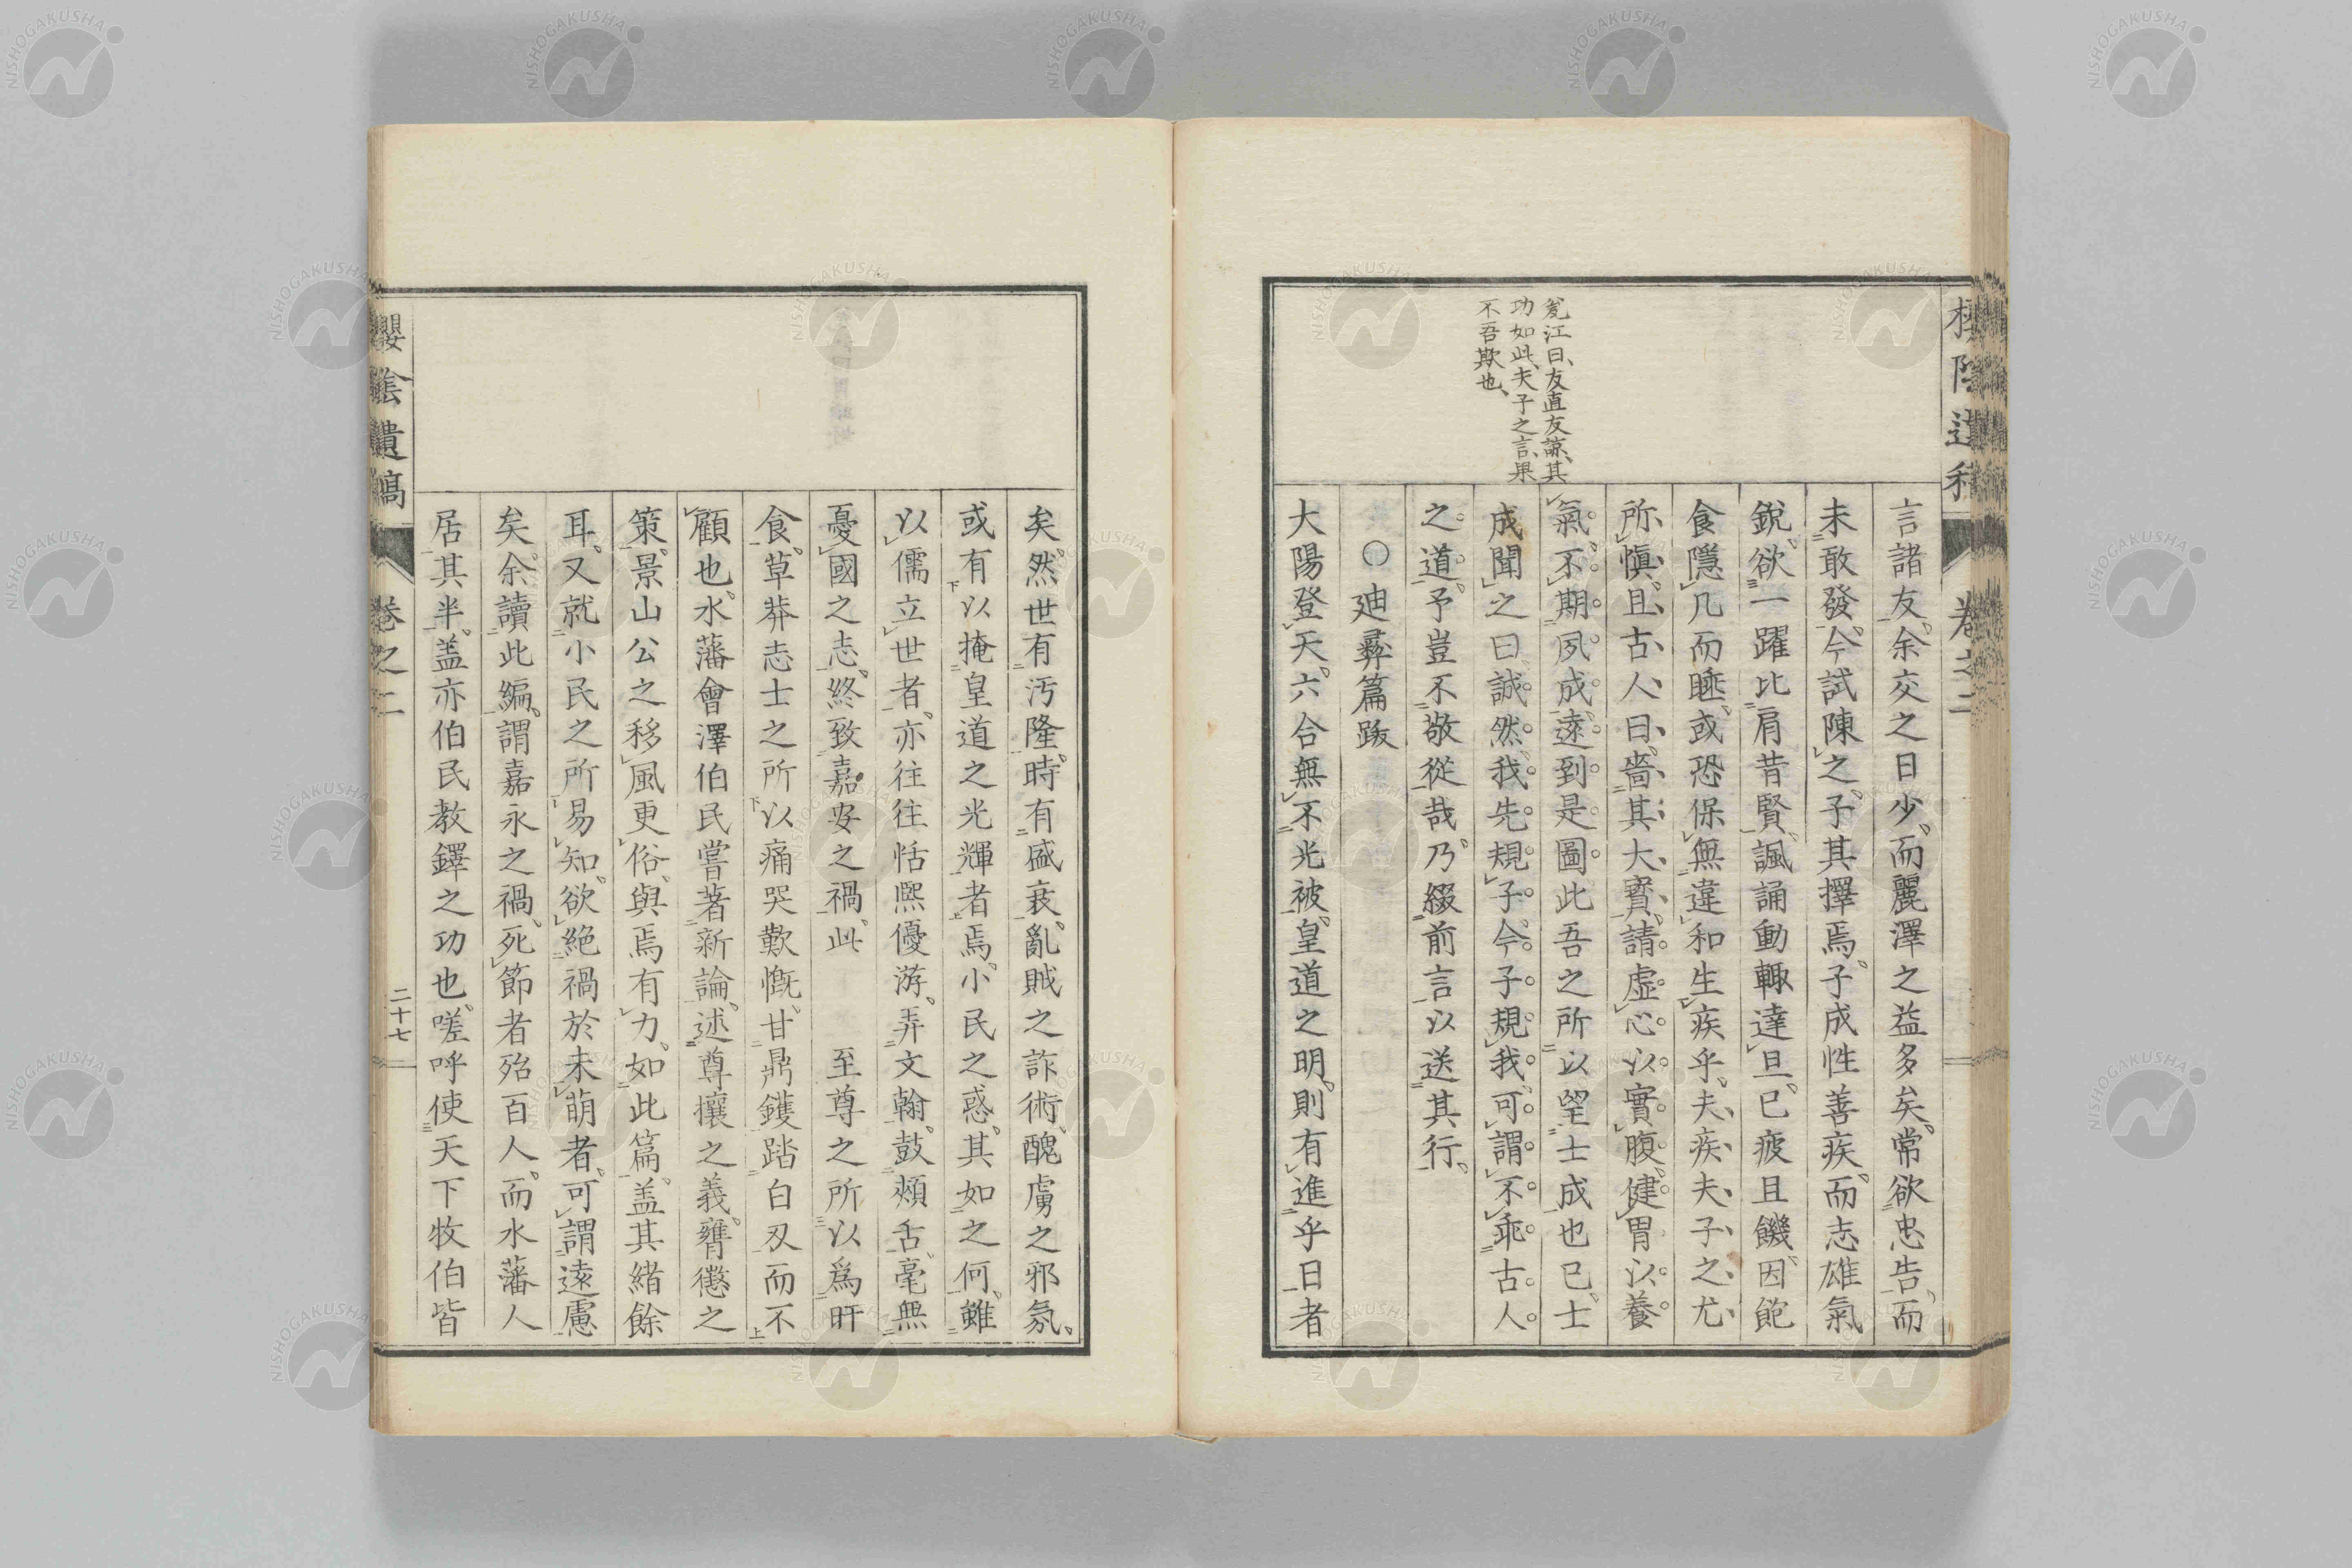 言諸友。余交之日少。而麗澤之益多矣。常欲忠告。而
未敢發。今試陳之。子其擇焉。子成性善疾。而志雄氣
銳。欲一躍比肩昔賢。諷誦動輙達旦。已疲且饑。因飽
食隱几而睡。或恐保無違和生疾乎。夫疾夫子之尤
所愼。且古人曰。嗇其大寶。請虛心以實腹。健胃以養
氣。不期夙成。遠到是圖。此吾之所以望士成也已。士
成聞之曰。誠然。我先規子。今子規我。可謂不乖古人
之道。予豈不敬從哉。乃綴前言以送其行。
○廸彝篇跋
大陽登天。六合無不光被。皇道之明。則有進乎日者
瓮江曰、友直友諒、其
功如此、夫子之言、果
不吾欺也、
櫻陰遺稿
卷之二
矣。然世有汚隆。時有盛衰。亂賊之詐術。醜虜之邪氛。
或有以掩皇道之光輝者焉。小民之惑。其如之何。雖
以儒立世者。亦往往恬熙優游。弄文翰。鼓頰舌。毫無
憂國之志。終致嘉安之禍。此 至尊之所以爲旰
食。草莽志士之所以痛哭歎慨。甘鼎鑊踏白刄而不
顧也。水藩會澤伯民嘗著新論。述尊攘之義。膺懲之
策。景山公之移風更俗。與焉有力。如此篇。盖其緖餘
耳。又就小民之所易知。欲絕禍於未萌者。可謂遠慮
矣。余讀此編。謂嘉永之禍。死節者殆百人。而水藩人
居其半。盖亦伯民敎鐸之功也。嗟呼使天下牧伯皆
櫻陰遺稿
卷之二
二十七